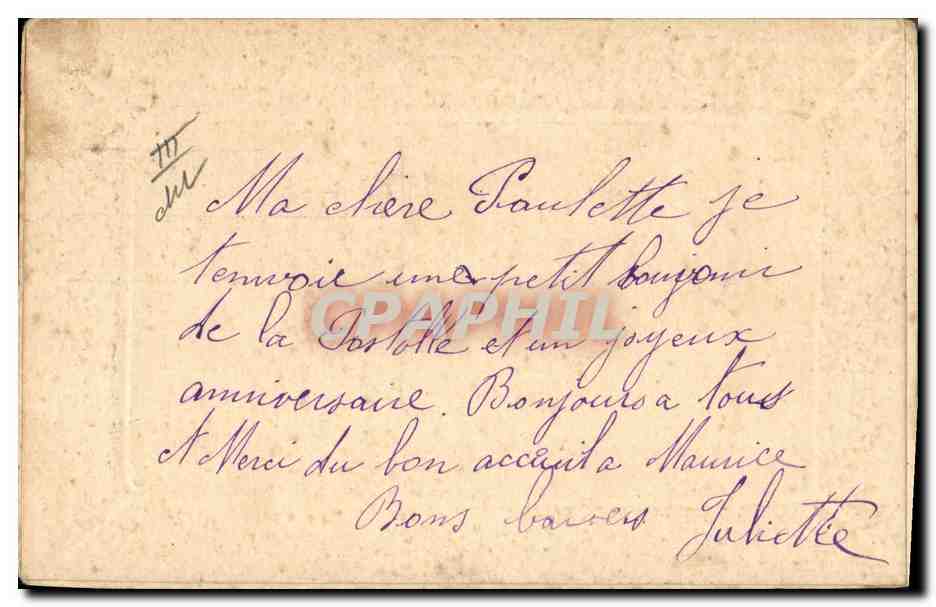 Ma chère Paulette je
tenvoie une petit bonjour
de la et un joyeux
anniversaire. Bonjours a tous
et Merci du bon acceuil a Maurice
Bons baisers Juliette
CPAPHIL